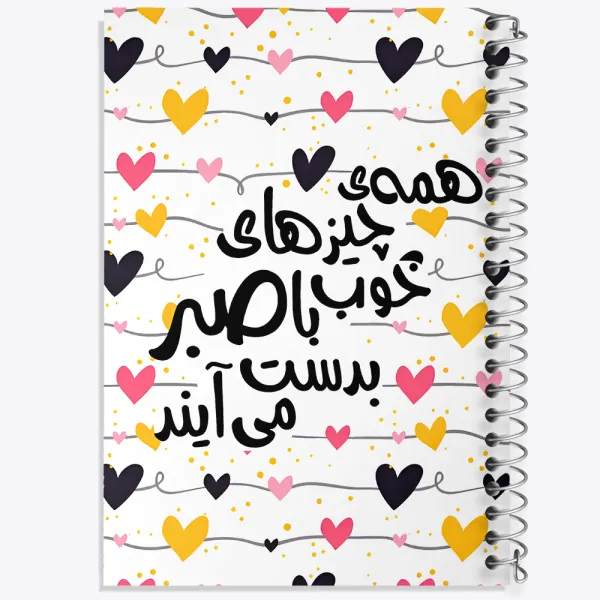 همه‌ی
چیزهای
خوب
با صبر
بدست
می آیند